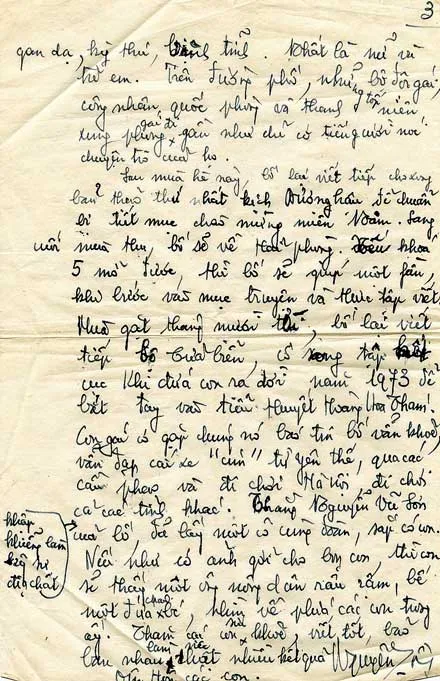 3
gan dạ, kỳ thú, bình tĩnh. Nhất là nữ và
trẻ em. Trên đường phố, những bộ đội gái,
công nhân, quốc phòng và thanh niên
xung phong gái đi gần như chỉ có tiếng cười nói
chuyện trò của họ.
Sau mùa hè này, bố lại viết tiếp cho xong
bản thảo thứ nhất kịch Dương hầu để chuẩn
bị tiết mục chào mừng miền Nam. Sang
cuối mùa thu, bố sẽ về Hải phòng. Nếu khoá
5 mở được, thì bố sẽ giúp một phần,
khi bước vào mục truyện và thực tập viết.
tháng mười, bố lại viết
tiếp bộ Cửa biển, cố xong tập
cục Khi đứa con ra đời năm 1973 để
bắt tay vào tiểu thuyết Hoàng Hoa Thám!
Con gái có gặp chúng nó bảo tin bố vẫn khoẻ,
vẫn đạp cái xe "cún" từ yên thế, qua các
cầu phao và đi chơi Hà nội đi chơi
cả các tỉnh khác. Thằng Nguyễn Vũ Sơn
của bố, đã lấy một cô cùng đoàn, sắp có con.
Nếu như có ảnh gửi cho bọn con, thì con
sẽ thấy một ông nông dân râu rậm, bế
một đứa cháu bé, nhìn về phía các con
ấy. Thăm các con khoẻ, viết tốt, bảo
ban nhau làm việc thật nhiều kết quả Nguyên
các con.
khập
khiễng làm
địa chất